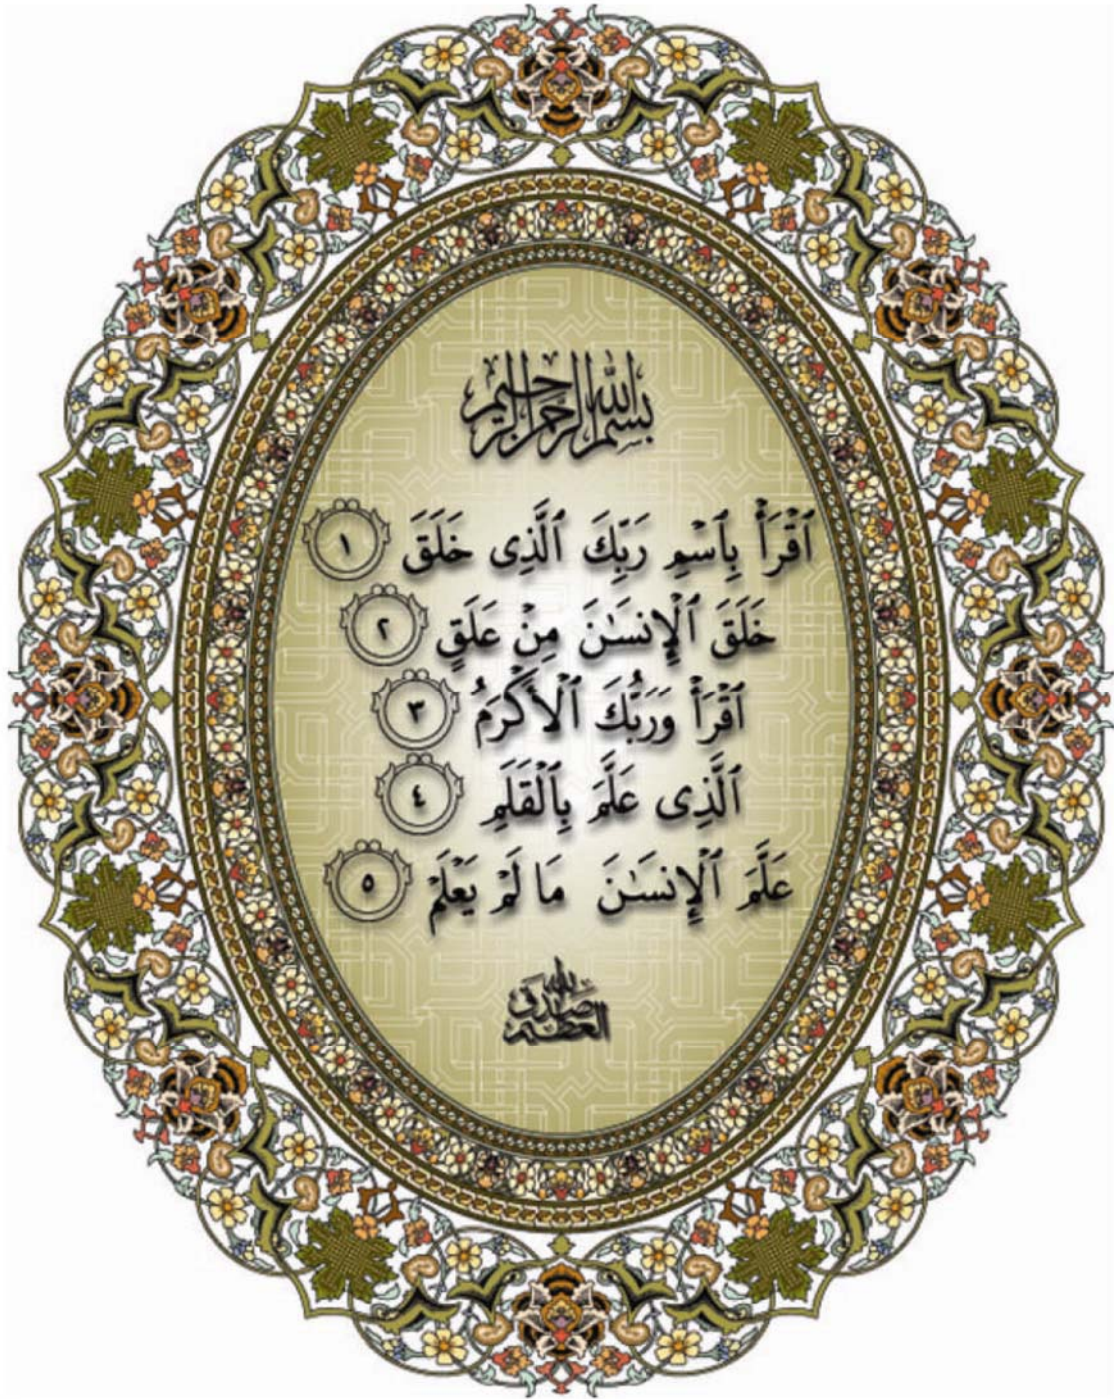 بسم الله الرحمن الرحيم
ٱقْرَأْ بِٱسْمِ رَبِّكَ ٱلَّذِى خَلَقَ ١
خَلَقَ ٱلْإِنسَٰنَ مِنْ عَلَقٍ ٢
ٱقْرَأْ وَرَبُّكَ ٱلْأَكْرَمُ ٣
ٱلَّذِى عَلَّمَ بِٱلْقَلَمِ ٤
عَلَّمَ ٱلْإِنسَٰنَ مَا لَمْ يَعْلَمْ ٥
صدق الله العظيم